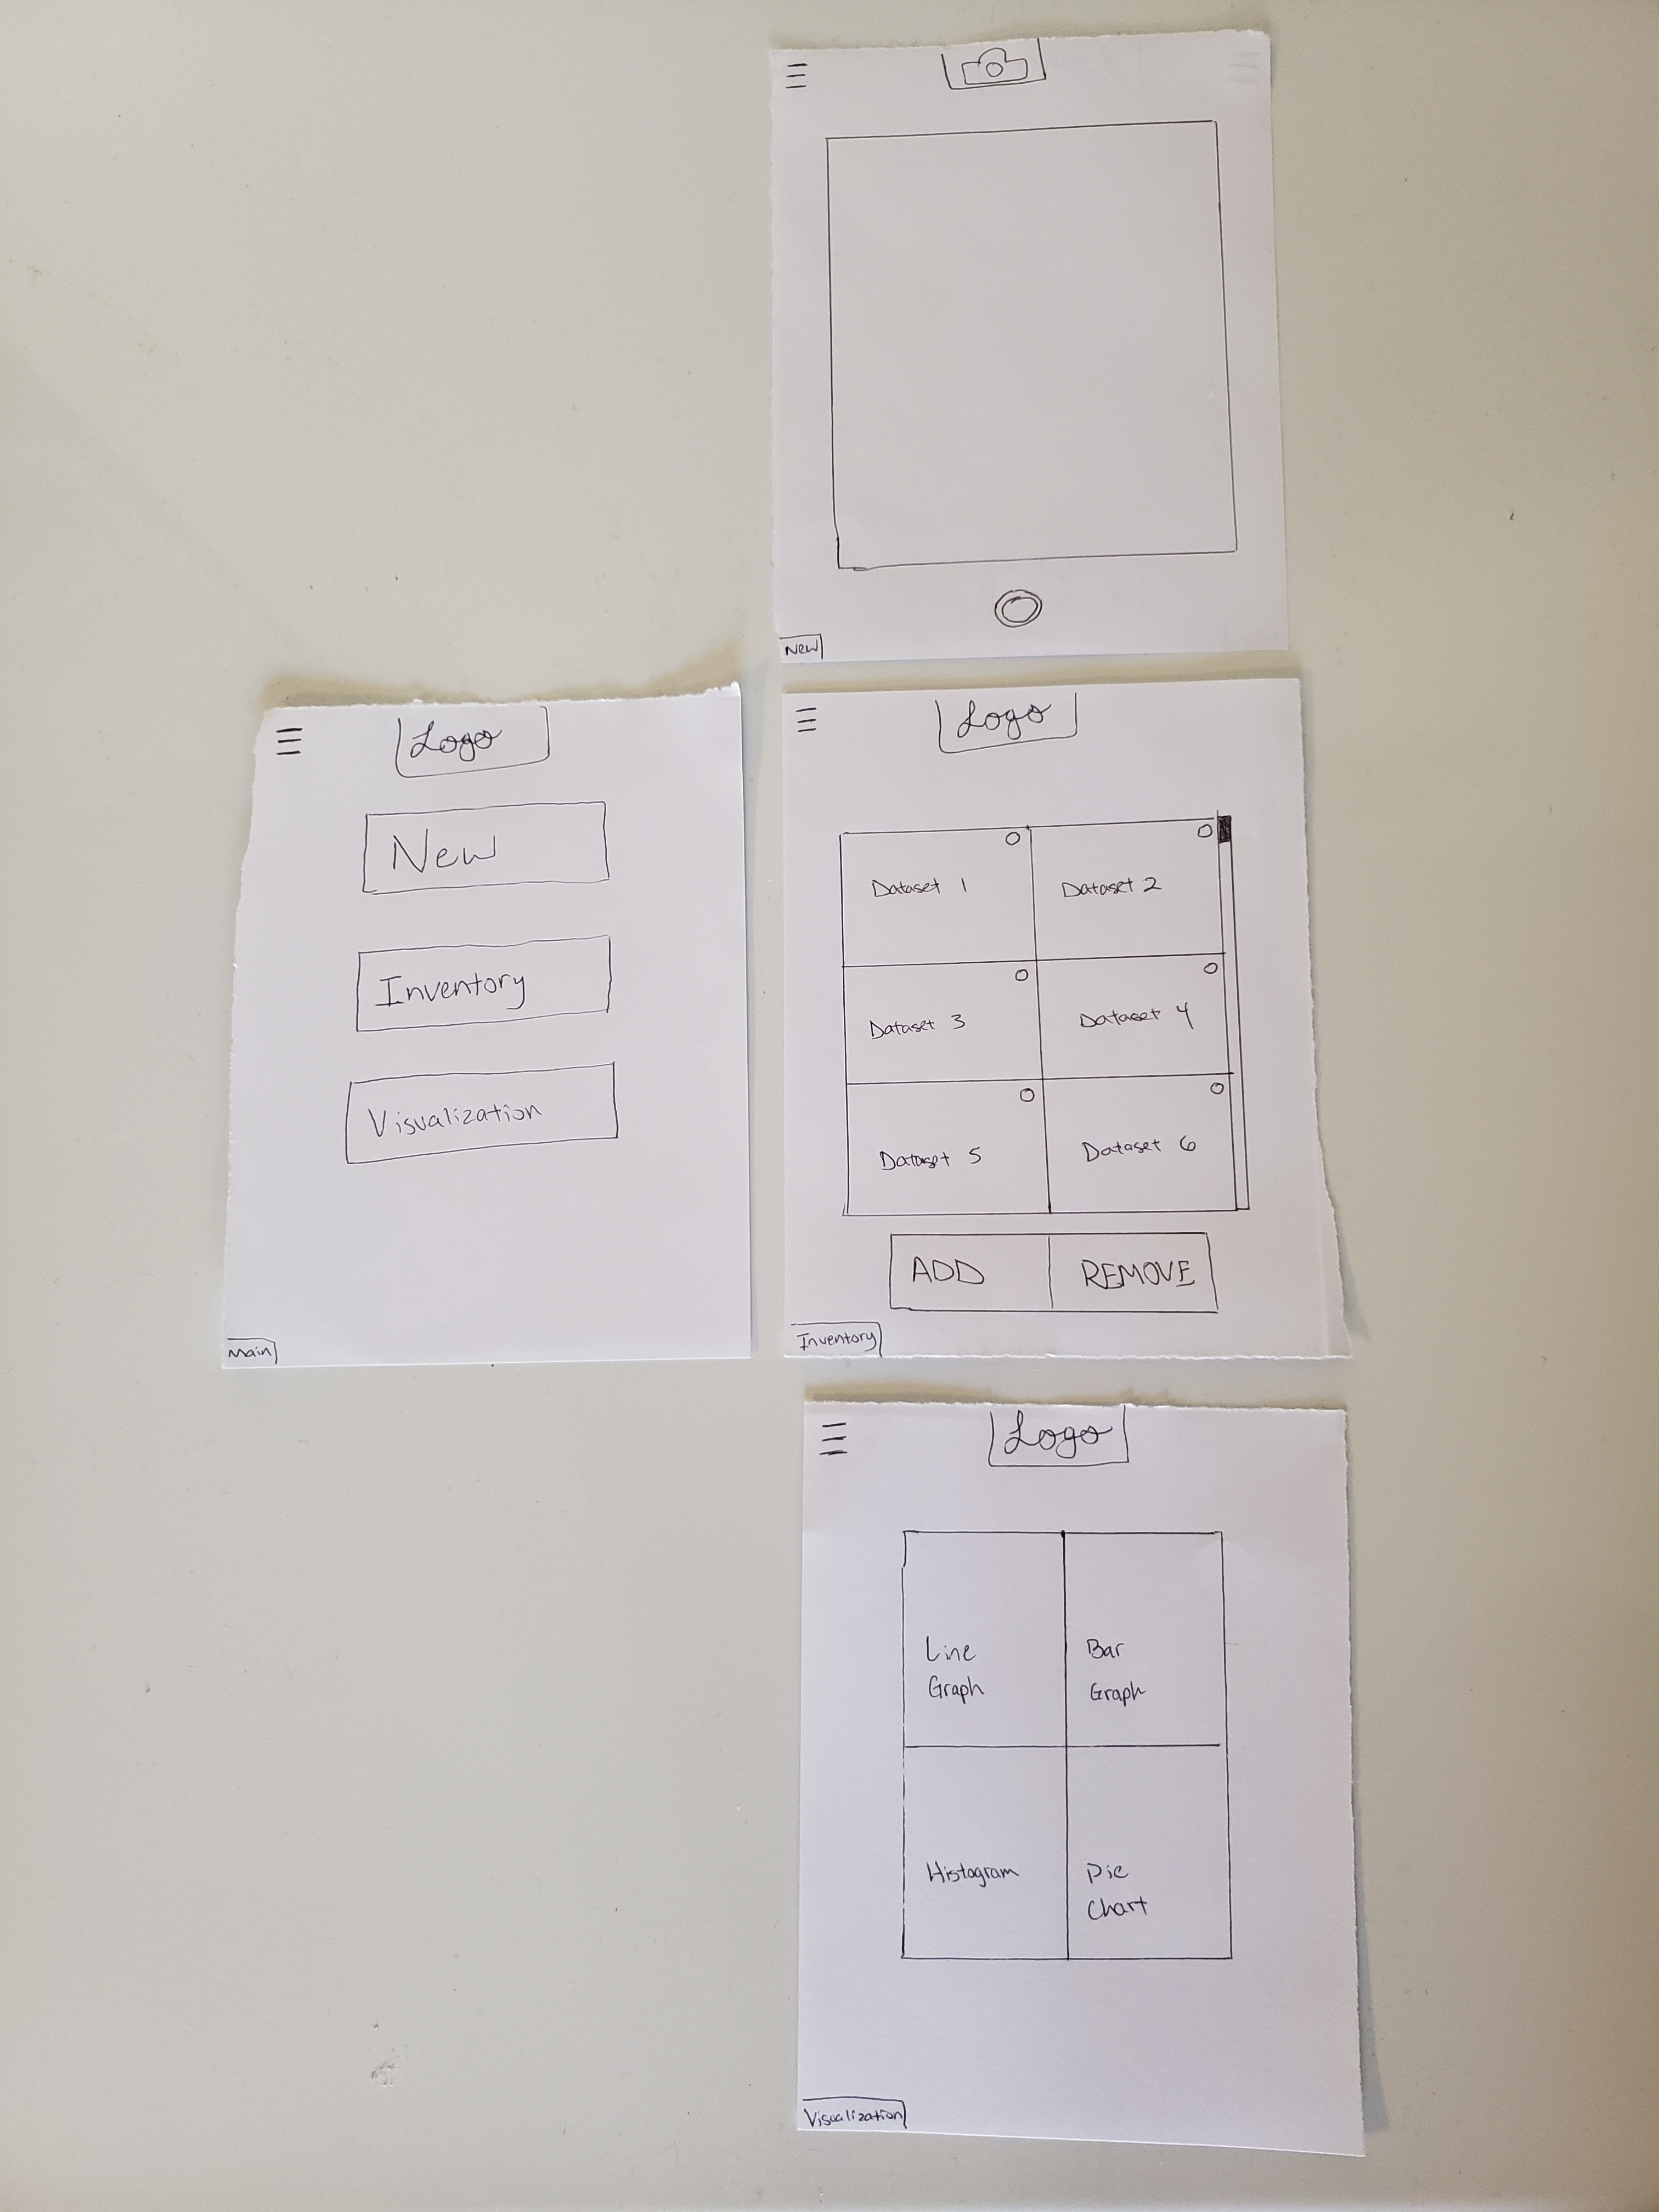 New
Logo
New
Inventory
Visualization
Main
Logo
Dataset 1
Dataset 2
Dataset 3
Dataset 4
Dataset 5
Dataset 6
ADD
REMOVE
Inventory
Logo
Line
Graph
Bar
Graph
Histogram
Pie
Chart
Visualization